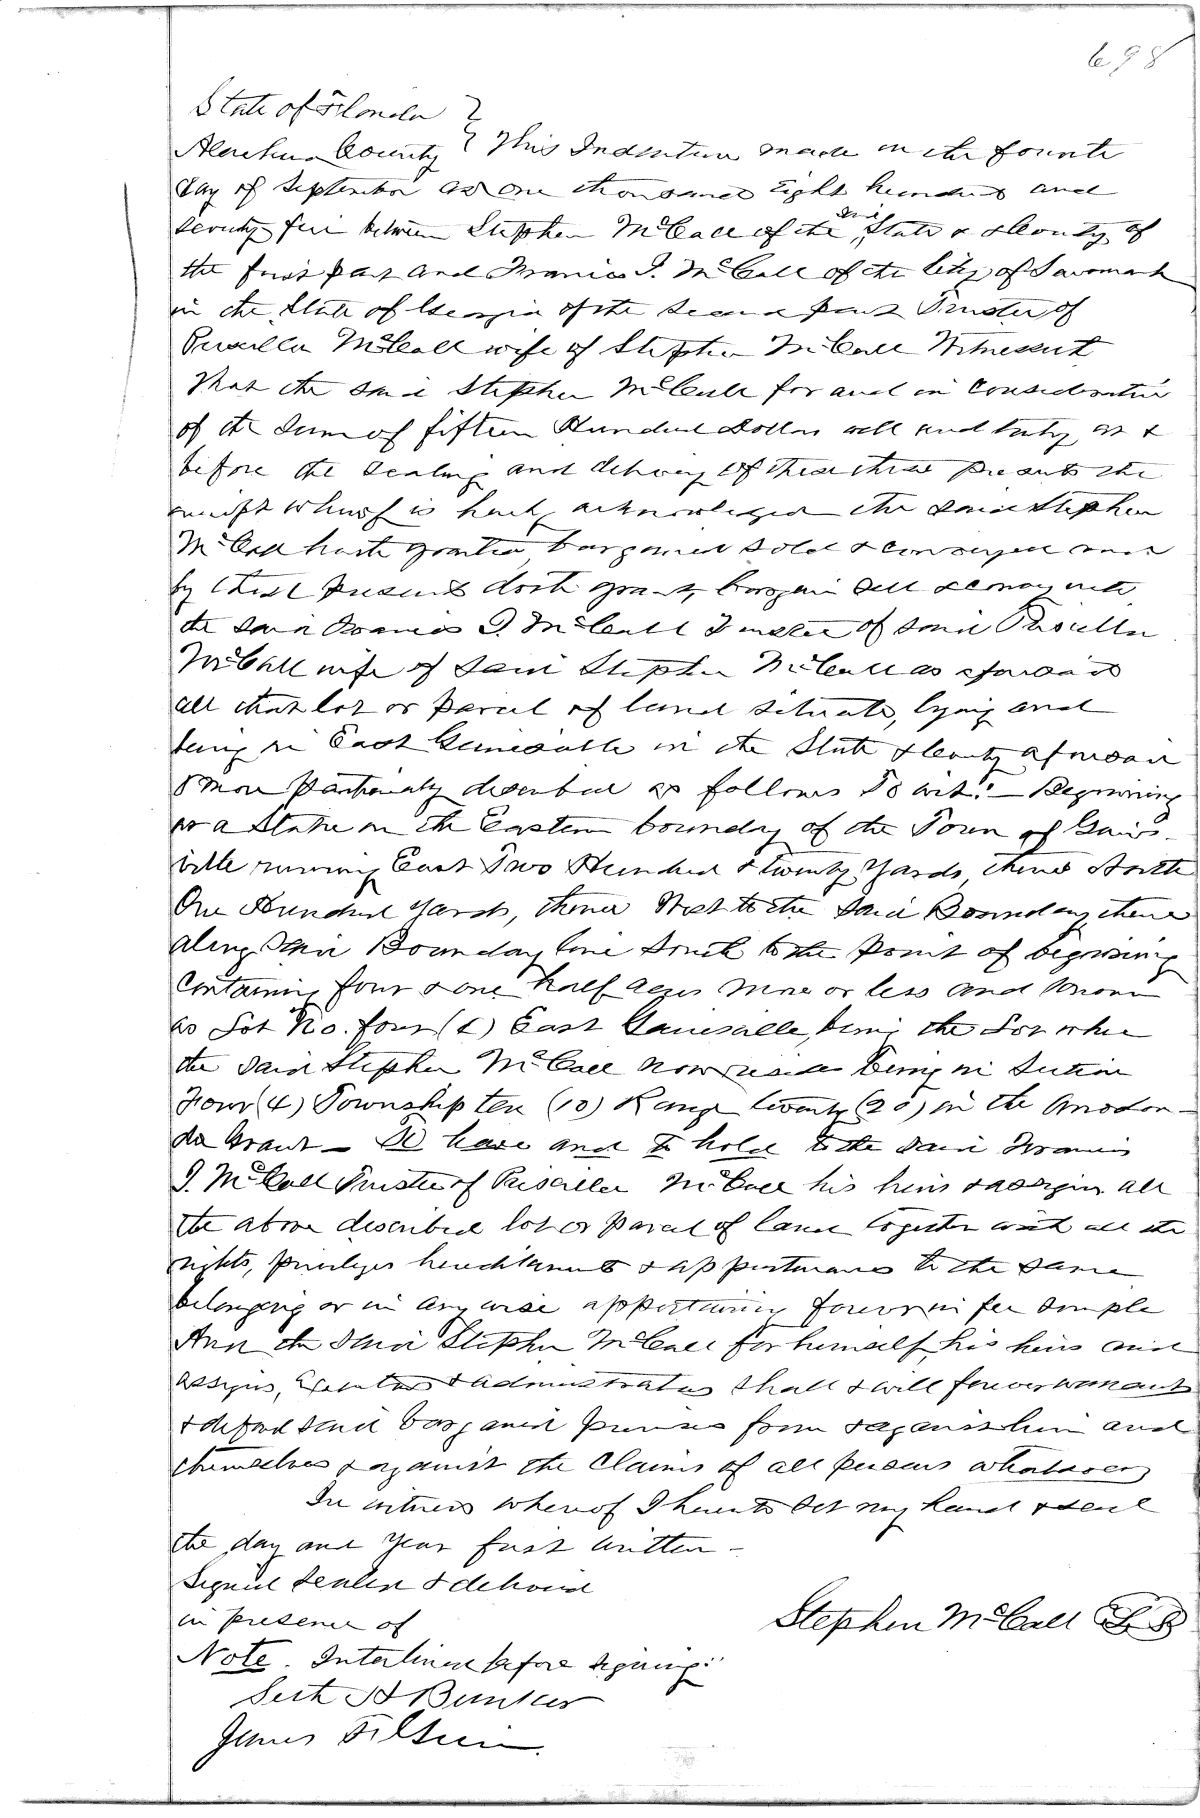 698
State of Florida }
Alachua County } This Indenture made on the fourth
day of September AD One thousand Eight hundred and
seventy five between Stephen McCall of the said State & County of
the first part and Francis I. McCall of the City of Savannah
in the State of Georgia of the second part Trustee of
Priscilla McCall wife of Stephen McCall Witnesseth
That the said Stephen McCall for and in Consideration
of the sum of fifteen Hundred Dollars well and truly at &
before the sealing and delivery of these these presents the
receipt whereof is hereby acknowledged the said Stephen
McCall hath granted, bargained sold & conveyed and
by these presents doth grant, bargain sell & convey unto
the said Francis I. McCall Trustee of said Priscilla
McCall wife of said Stephen McCall as aforesaid
all that lot or parcel of land situate, lying and
being in East Gainesville in the State & County aforesaid
& more particularly described as follows To wit:— Beginning
at a Stake on the Eastern boundary of the Town of Gaines-
ville running East Two Hundred & twenty Yards, thence North
One Hundred Yards, thence West to the Said Boundary thence
along Said Boundary line South to the point of beginning
Containing four & one half acres more or less and known
as Lot No. four (4) East Gainesville, being the Lot where
the said Stephen McCall now resides being in Section
Four (4) Township ten (10) Range twenty (20) in the Arredon-
do Grant — To have and to hold to the said Francis
I. McCall Trustee of Priscilla McCall his heirs & assigns all
the above described lot or parcel of land together with all the
rights, privileges hereditaments & appurtenances to the same
belonging or in any wise appertaining forever in fee simple
And the said Stephen McCall for himself, his heirs and
assigns, Executors & administrators shall & will forever warrant
& defend said bargained premises from & against him and
themselves & against the Claims of all persons whatsoever
In witness whereof I hereunto set my hand & seal
the day and year first written —
Signed sealed & delivered
in presence of
Stephen McCall LS
Note. Interlined before signing:
Seth H Bunker
James